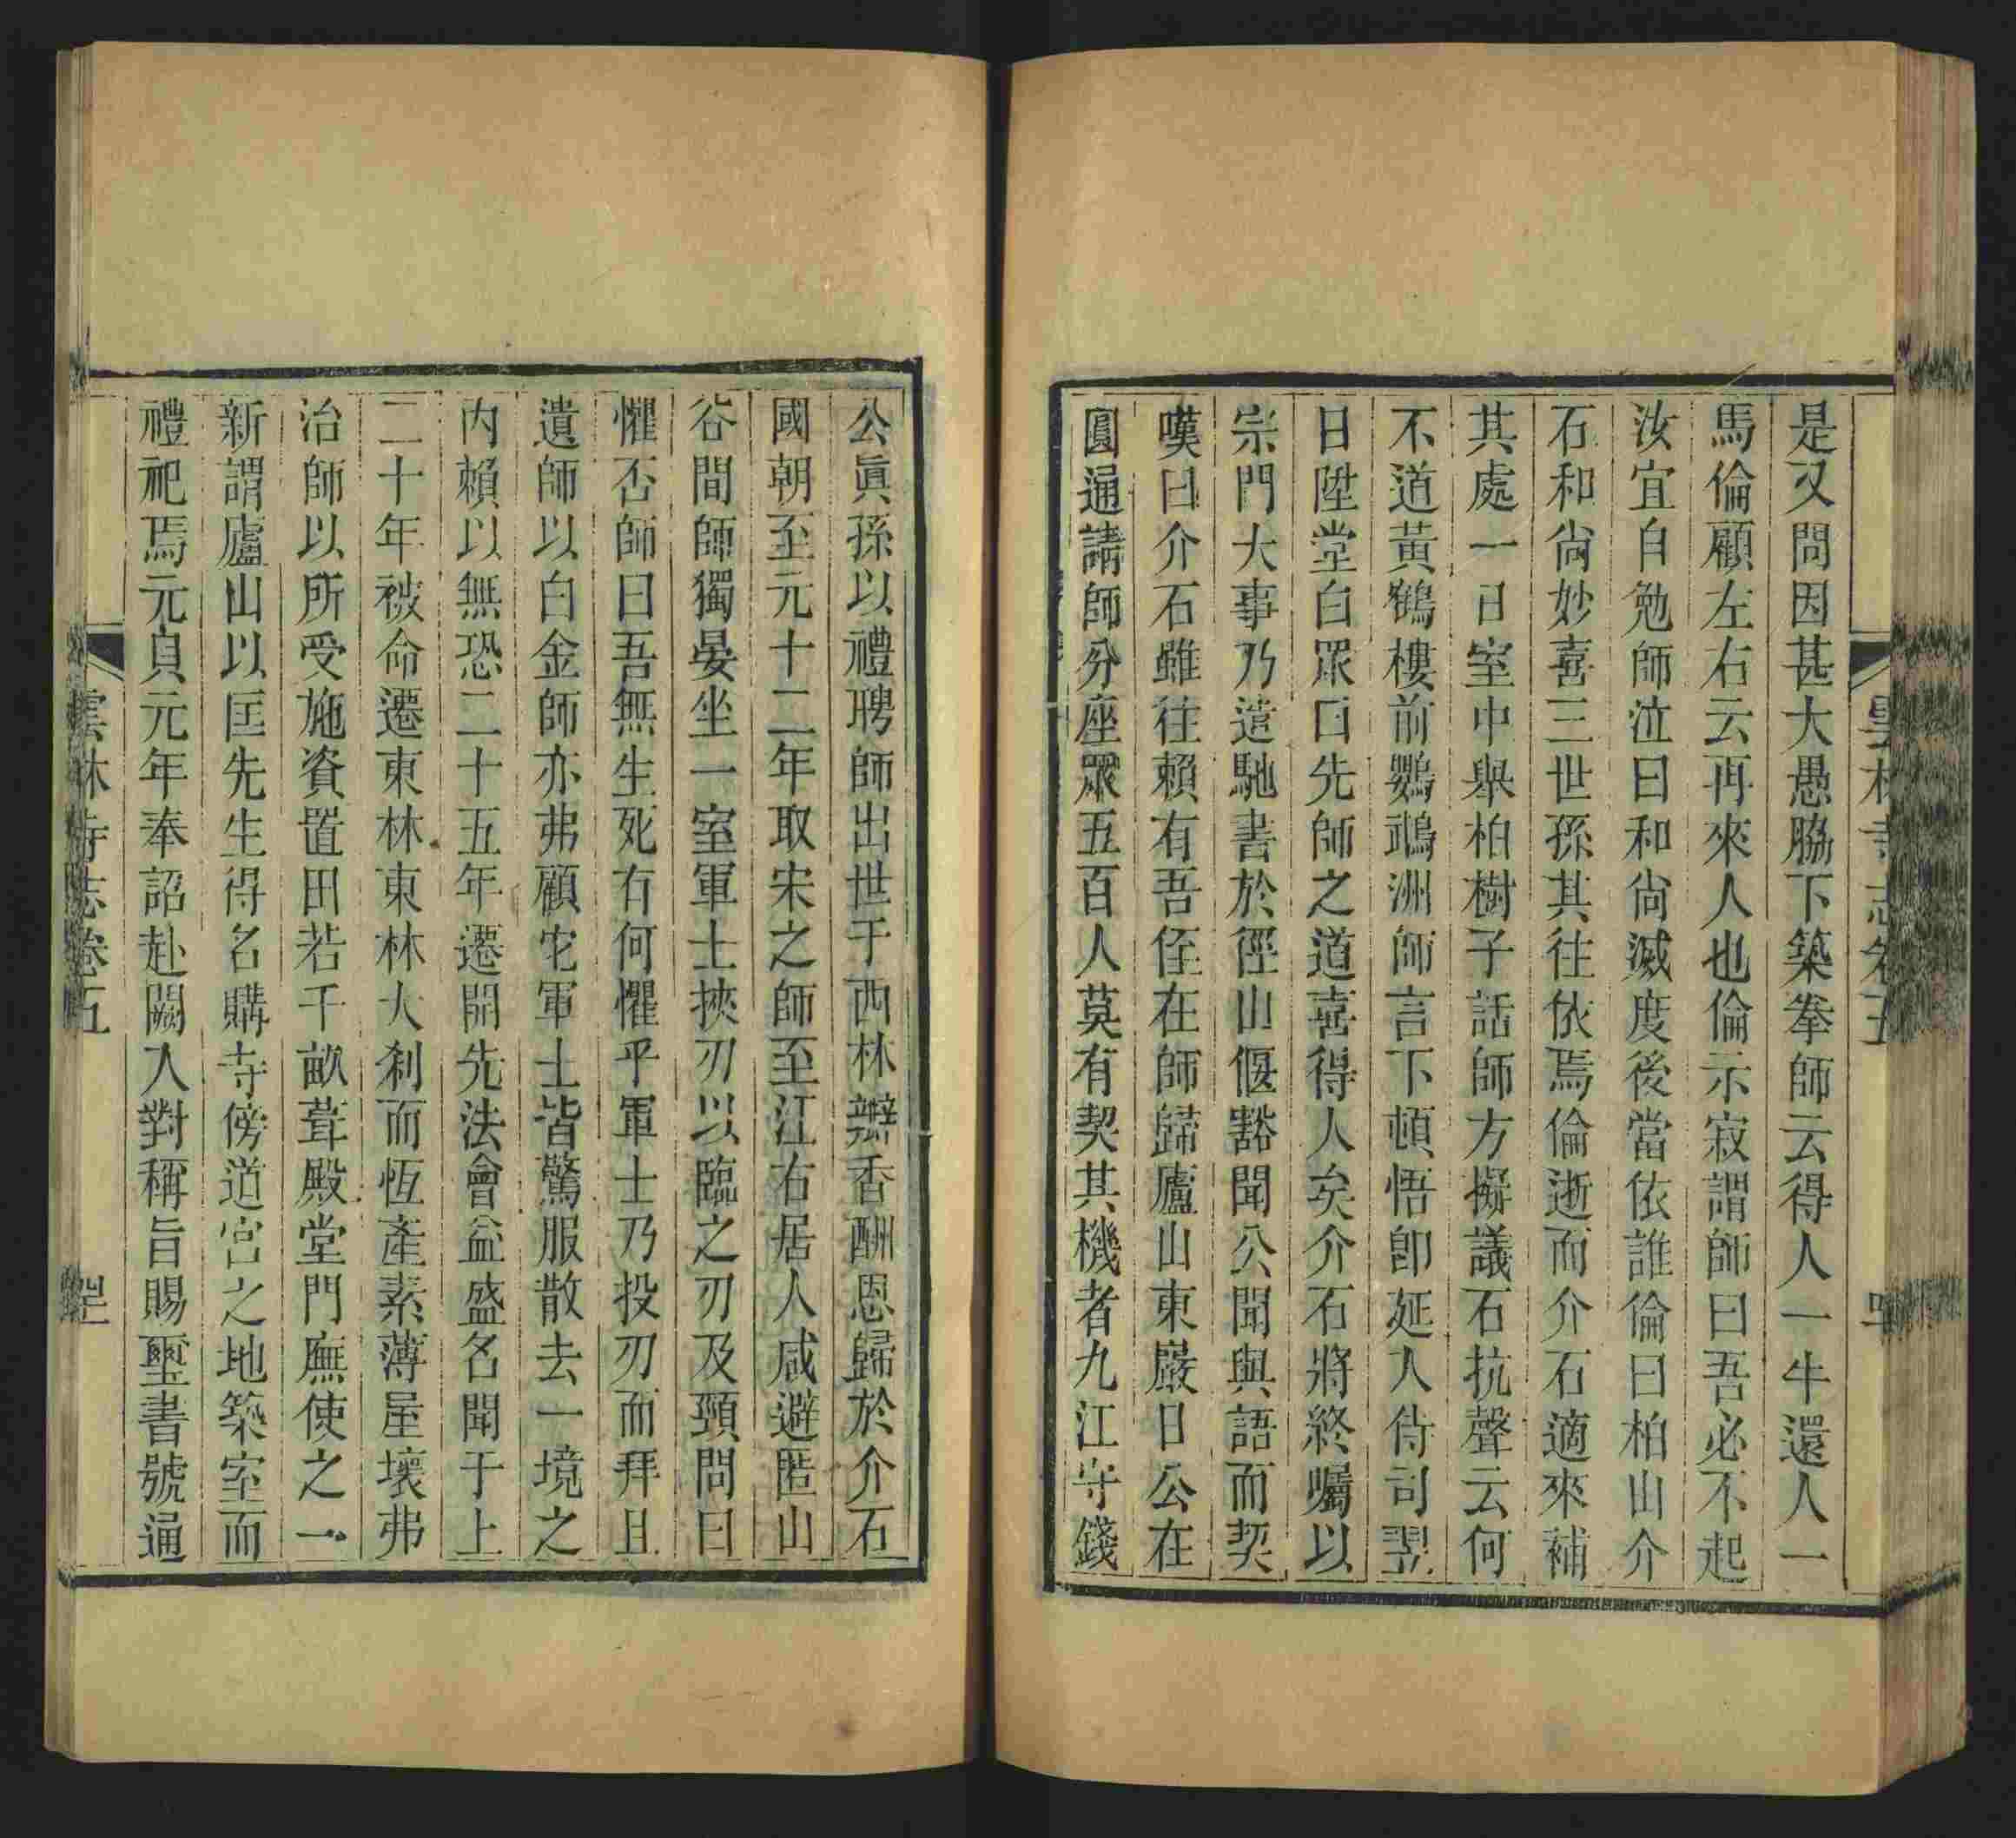 是又問因甚大愚脇下築拳師云得人一牛還人一
馬倫顧左右云再來人也倫示寂謂師曰吾必不起
汝宜自勉師泣曰和尙滅度後當依誰倫曰柏山介
石和尙妙喜三世孫其往依焉倫逝而介石適來補
其處一日室中舉柏樹子話師方擬議石抗聲云何
不道黃鶴樓前鸚鵡洲師言下頓悟卽延入侍司翌
日陞堂白眾曰先師之道喜得人矣介石將終囑以
宗門大事乃遣馳書於徑山偃谿聞公聞與語而契
嘆曰介石雖往賴有吾侄在師歸廬山東巖日公在
圓通請師分座眾五百人莫有契其機者九江守錢
雲林寺志卷五
公眞孫以禮聘師出世于西林瓣香酬恩歸於介石
國朝至元十二年取宋之師至江右居人咸避匿山
谷間師獨晏坐一室軍士挾刃以臨之刃及頸問曰
懼否師曰吾無生死有何懼乎軍士乃投刃而拜且
遺師以白金師亦弗顧它軍士皆驚服散去一境之
內賴以無恐二十五年遷開先法會益盛名聞于上
二十年被命遷東林東林大刹而恆產素薄屋壞弗
治師以所受施資置田若千畝葺殿堂門廡使之一
新謂廬山以匡先生得名購寺傍道宮之地築室而
禮祀焉元貞元年奉詔赴闕入對稱旨賜璽書號通
雲林寺志卷五